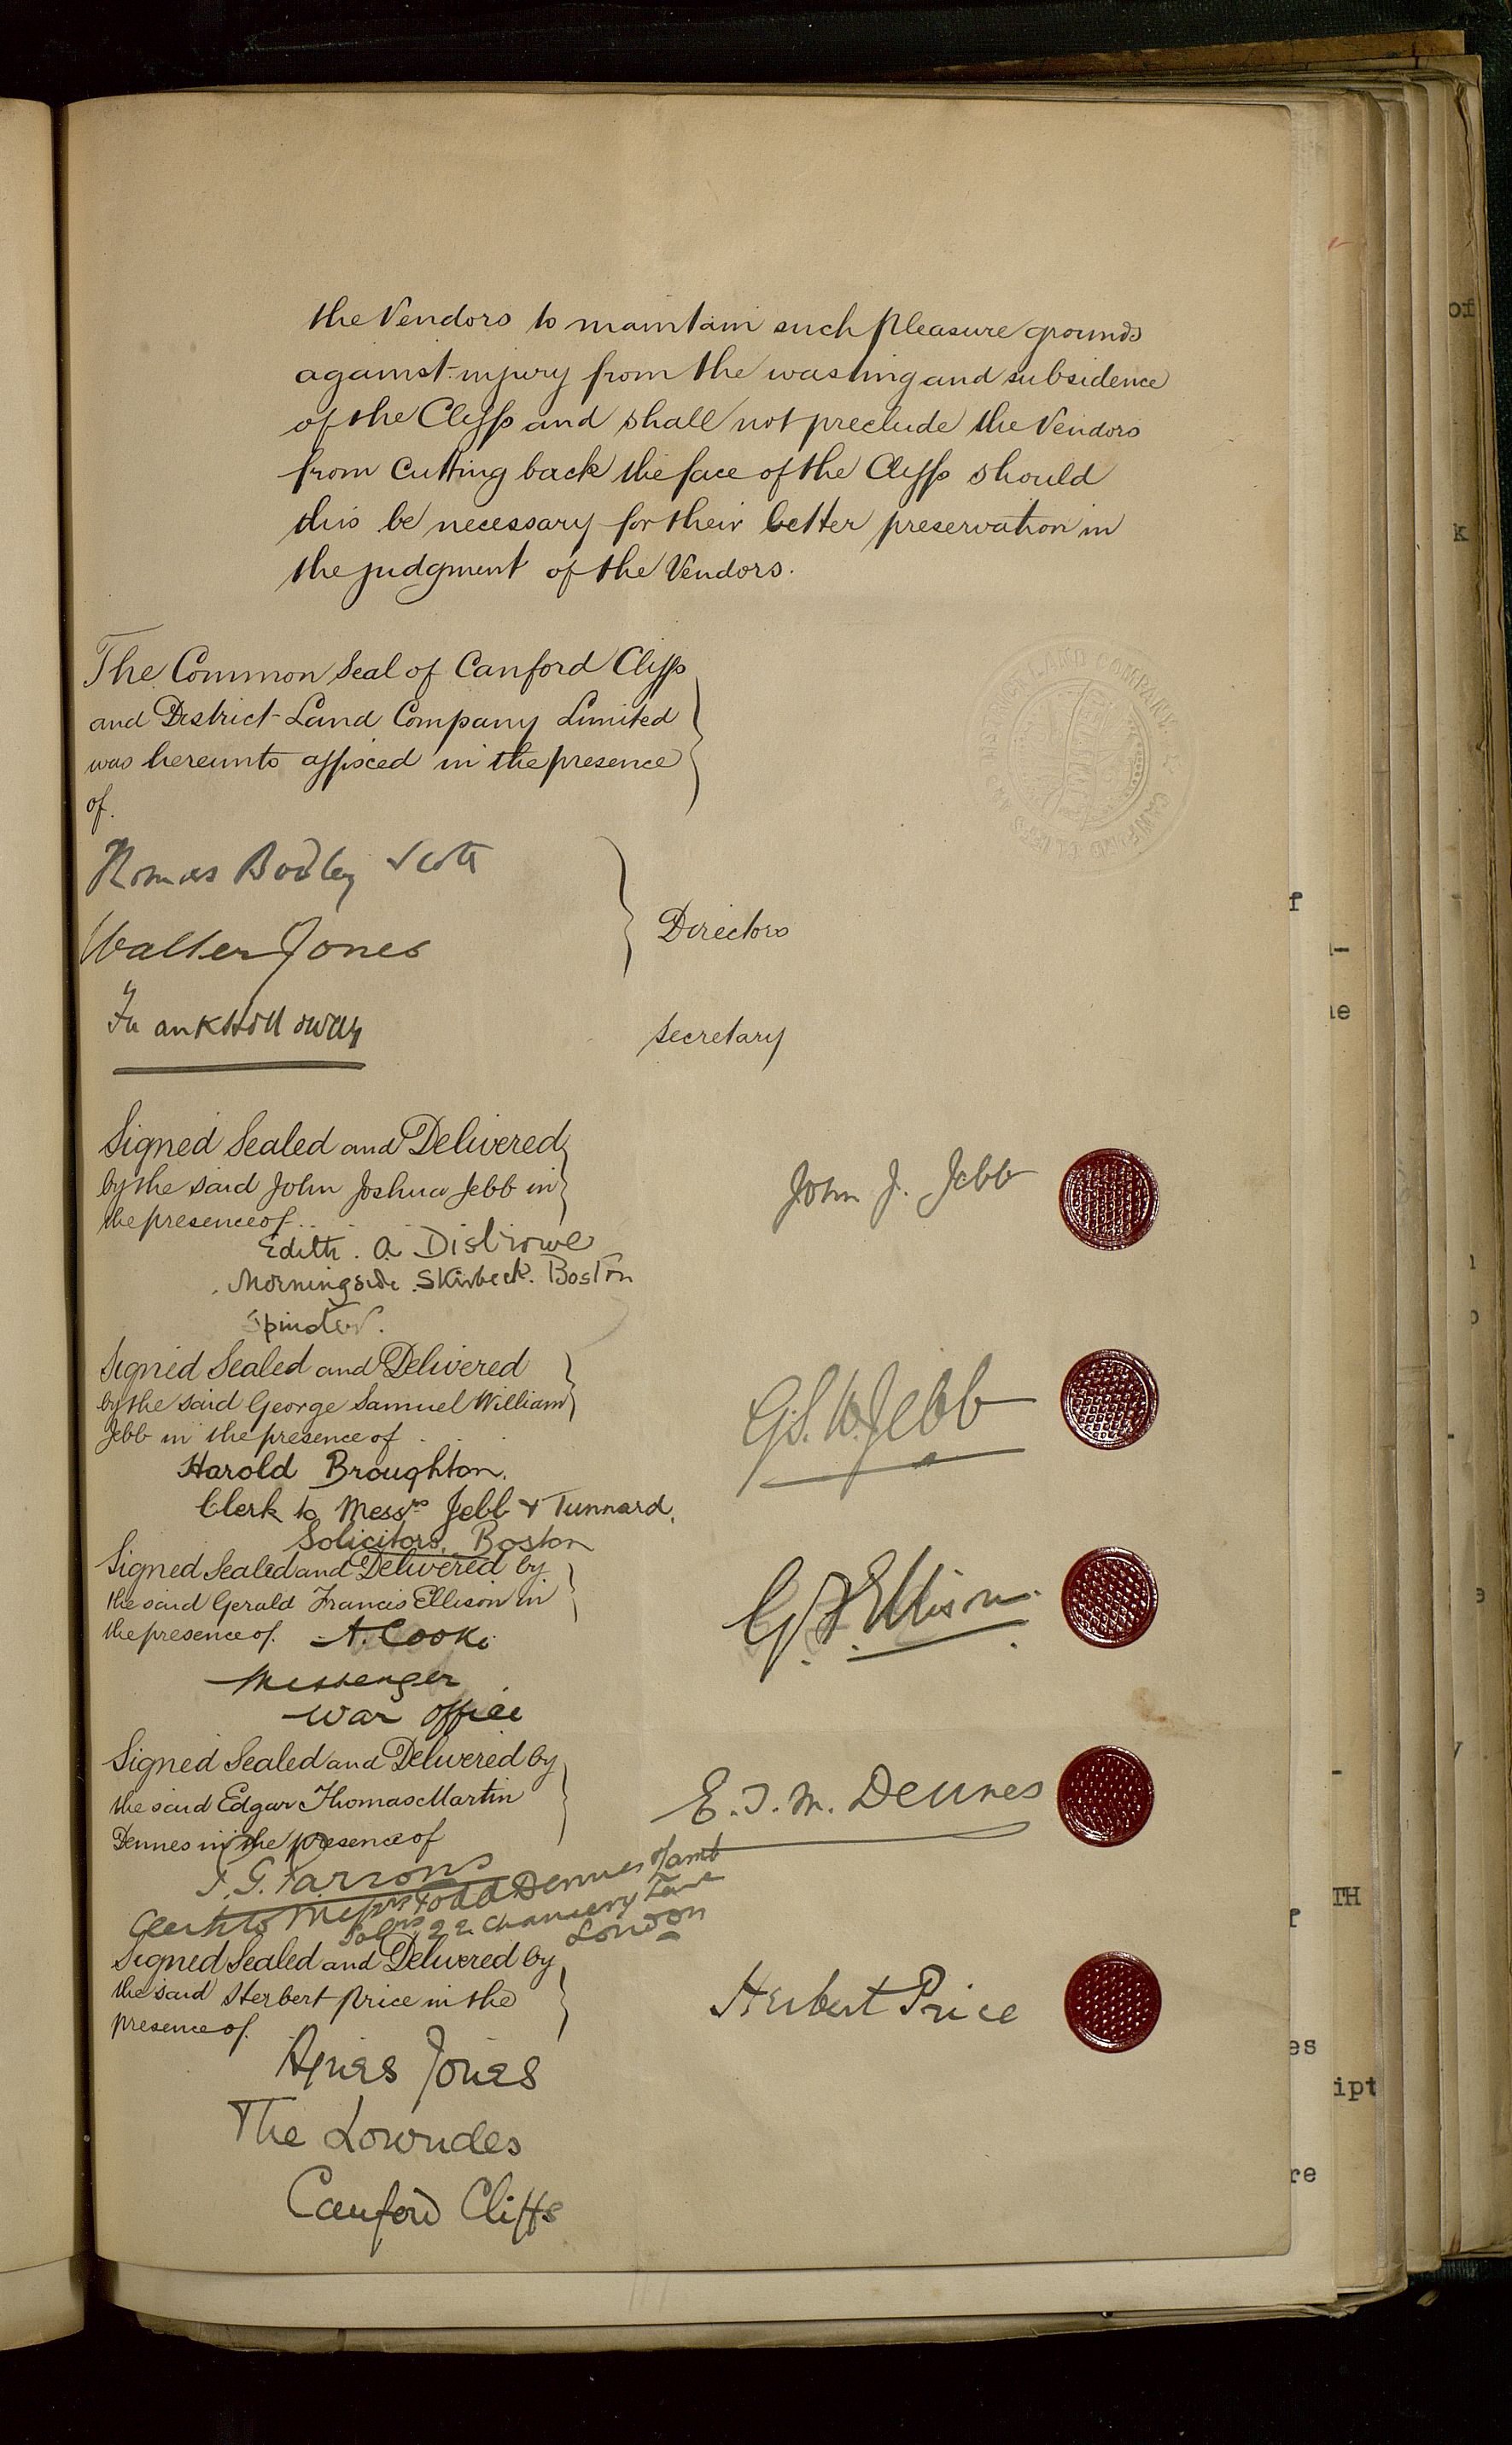 the Vendors to maintain such pleasure grounds
against injury from the wasting and subsidence
of the Cliffs and shall not preclude the Vendors
from cutting back the face of the Cliffs should
this be necessary for their better preservation in
the judgment of the Vendors.
The Common Seal of Canford Cliffs
and District Land Company Limited
was hereunto affixed in the presence
of.
Thomas Bodley Scott
Walter Jones
Directors
Frank Holloway
Secretary
AND DISTRICT LAND COMPANY
CANFORD CLIFFS
LIMITED
Signed Sealed and Delivered
by the said John Joshua Jebb in
the presence of
John J. Jebb
Edith. A.
Morningside. Skirbeck. Boston
Spinster.
Signed Sealed and Delivered
by the said George Samuel William
Jebb in the presence of
G.S.W. Jebb
Harold Broughton.
Clerk to Messrs Jebb & Tunnard.
Solicitors, Boston
Signed Sealed and Delivered by
the said Gerald Francis Ellison in
the presence of. A. Cooke
G F Ellison.
Messenger
War Office
Signed Sealed and Delivered by
the said Edgar Thomas Martin
Dennes in the presence of
E. T. M. Dennes
Parsons
Clerk to Messrs Todd Dennes & Lamb
Solrs 22 Chancery Lane
London
Signed Sealed and Delivered by
the said Herbert Price in the
presence of.
Herbert Price
Agnes Jones
The Lowndes
Canford Cliffs
of
k
f
TH
es
ipt
re